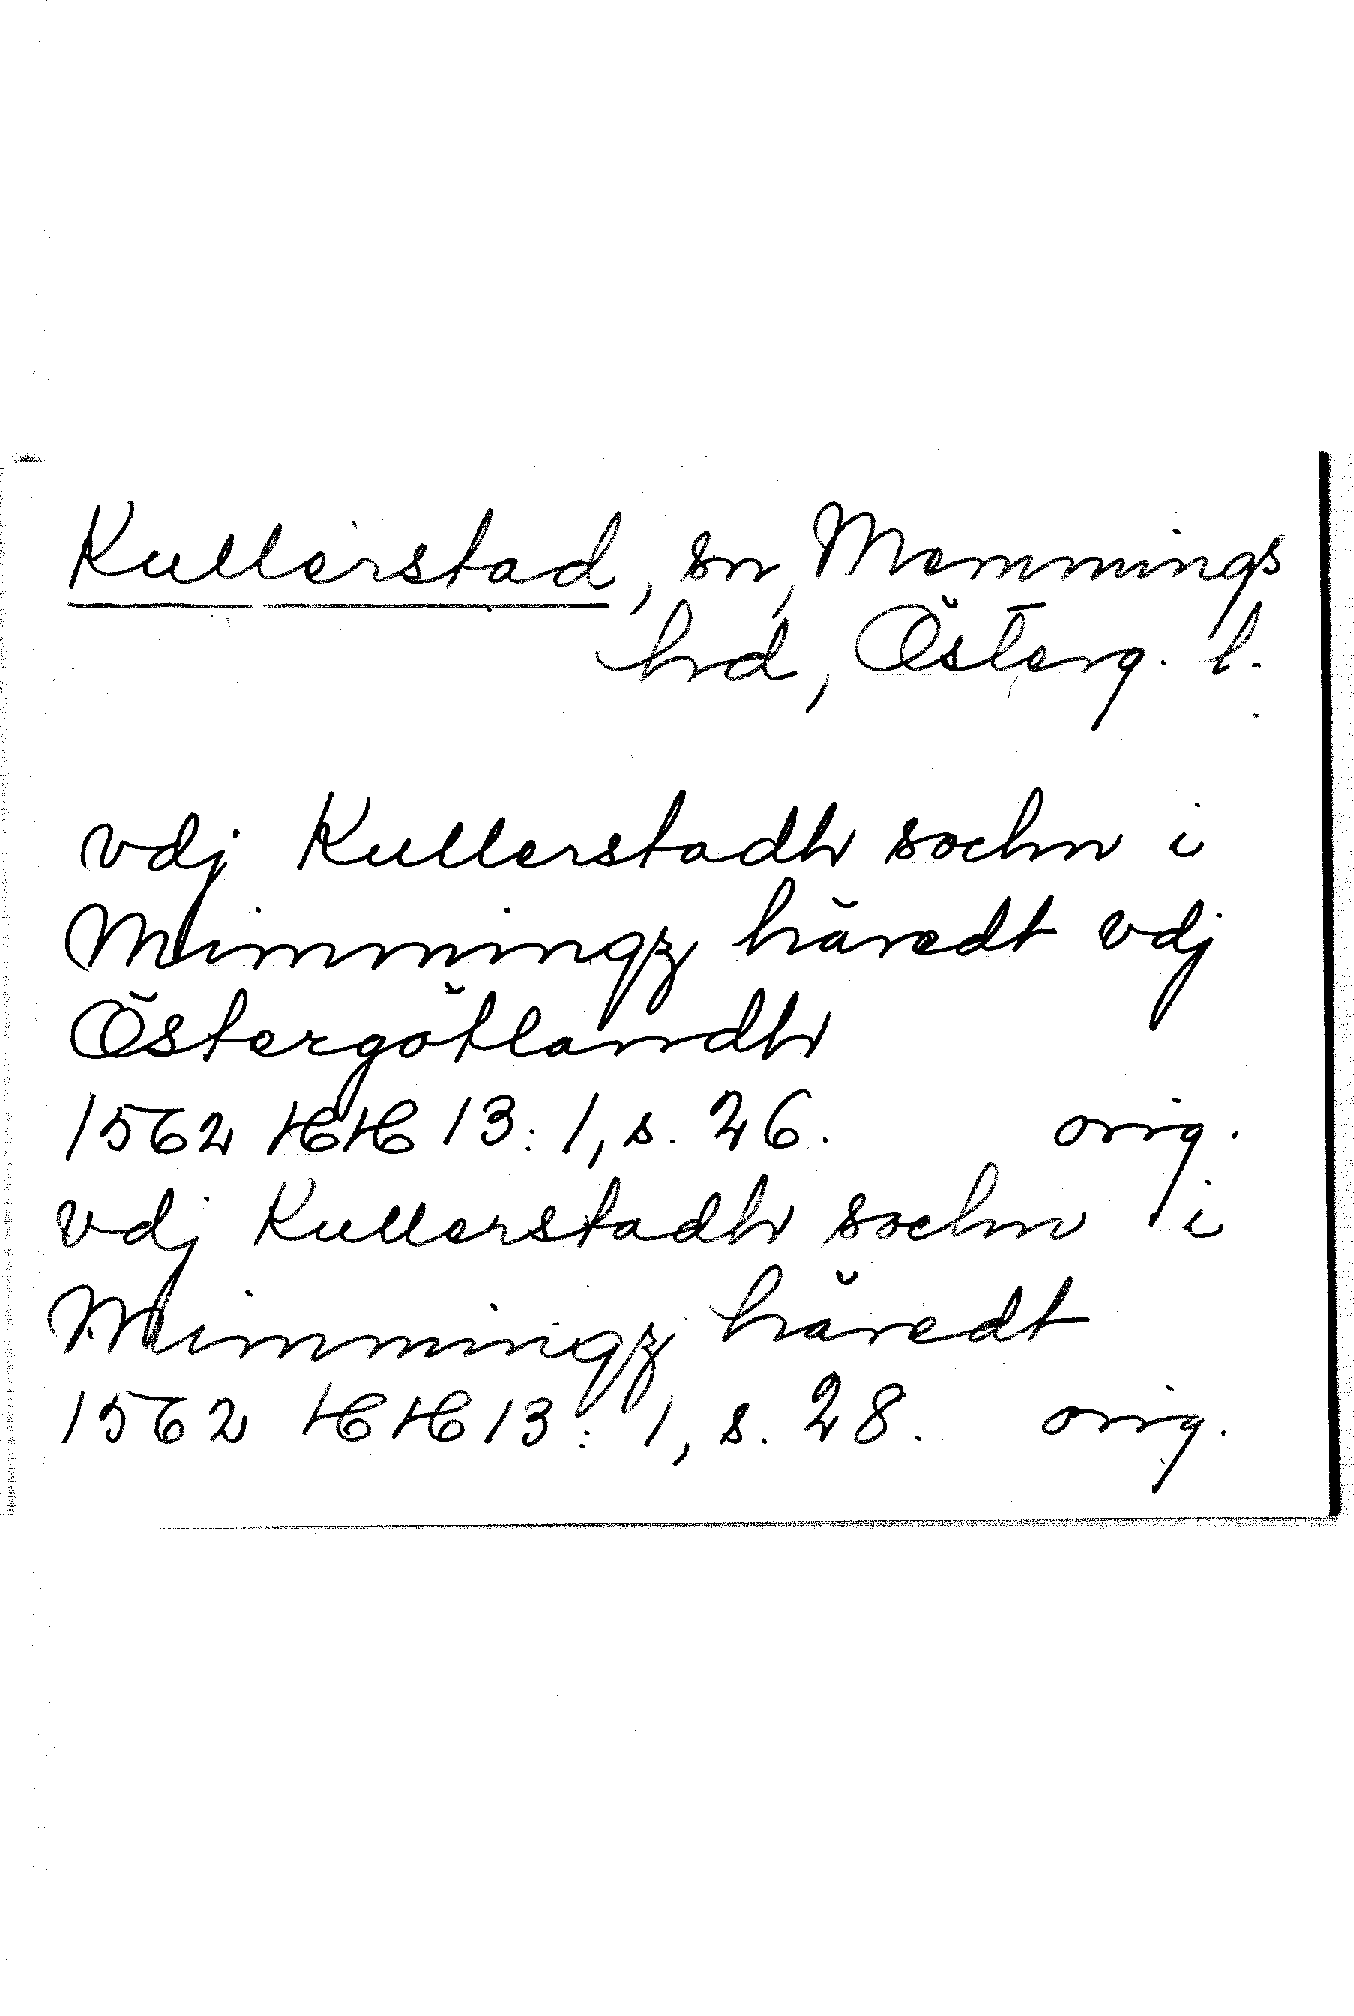 Kullerstad, sn, Memmings
hrd, Österg. l.
vdj Kullerstadh sochn i
Mimmingz häredt vdj
Östergötlandh
1562 HH 13:1, s. 26. orig.
vdj Kullerstadh sochn i
Mimmingz häredt
1562 HH 13:1, s. 28. orig.